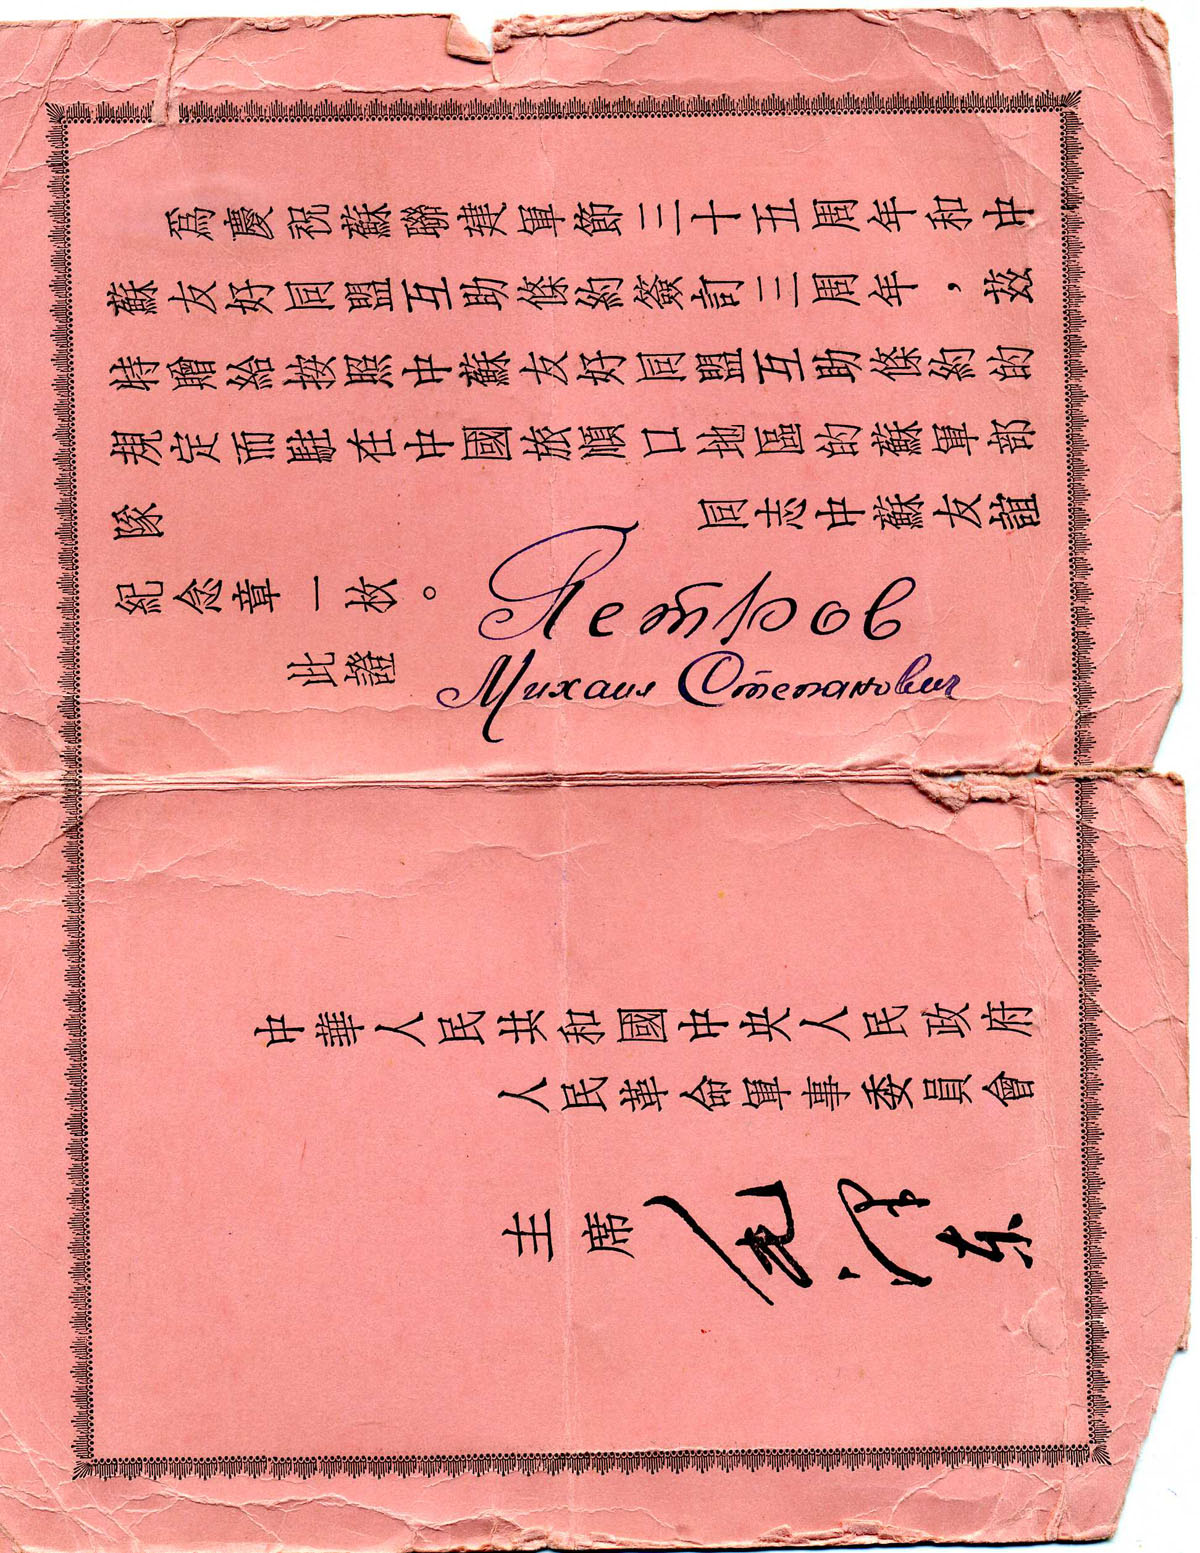 為慶祝蘇聯建軍節三十五周年和中
蘇友好同盟互助條約簽訂三周年，茲
特贈給按照中蘇友好同盟互助條約的
規定而駐在中國旅順口地區的蘇軍部
隊 同志中蘇友誼
紀念章一枚。
Петров
此證
Михаил Степанович
中華人民共和國中央人民政府
人民革命軍事委員會
主席 毛澤东